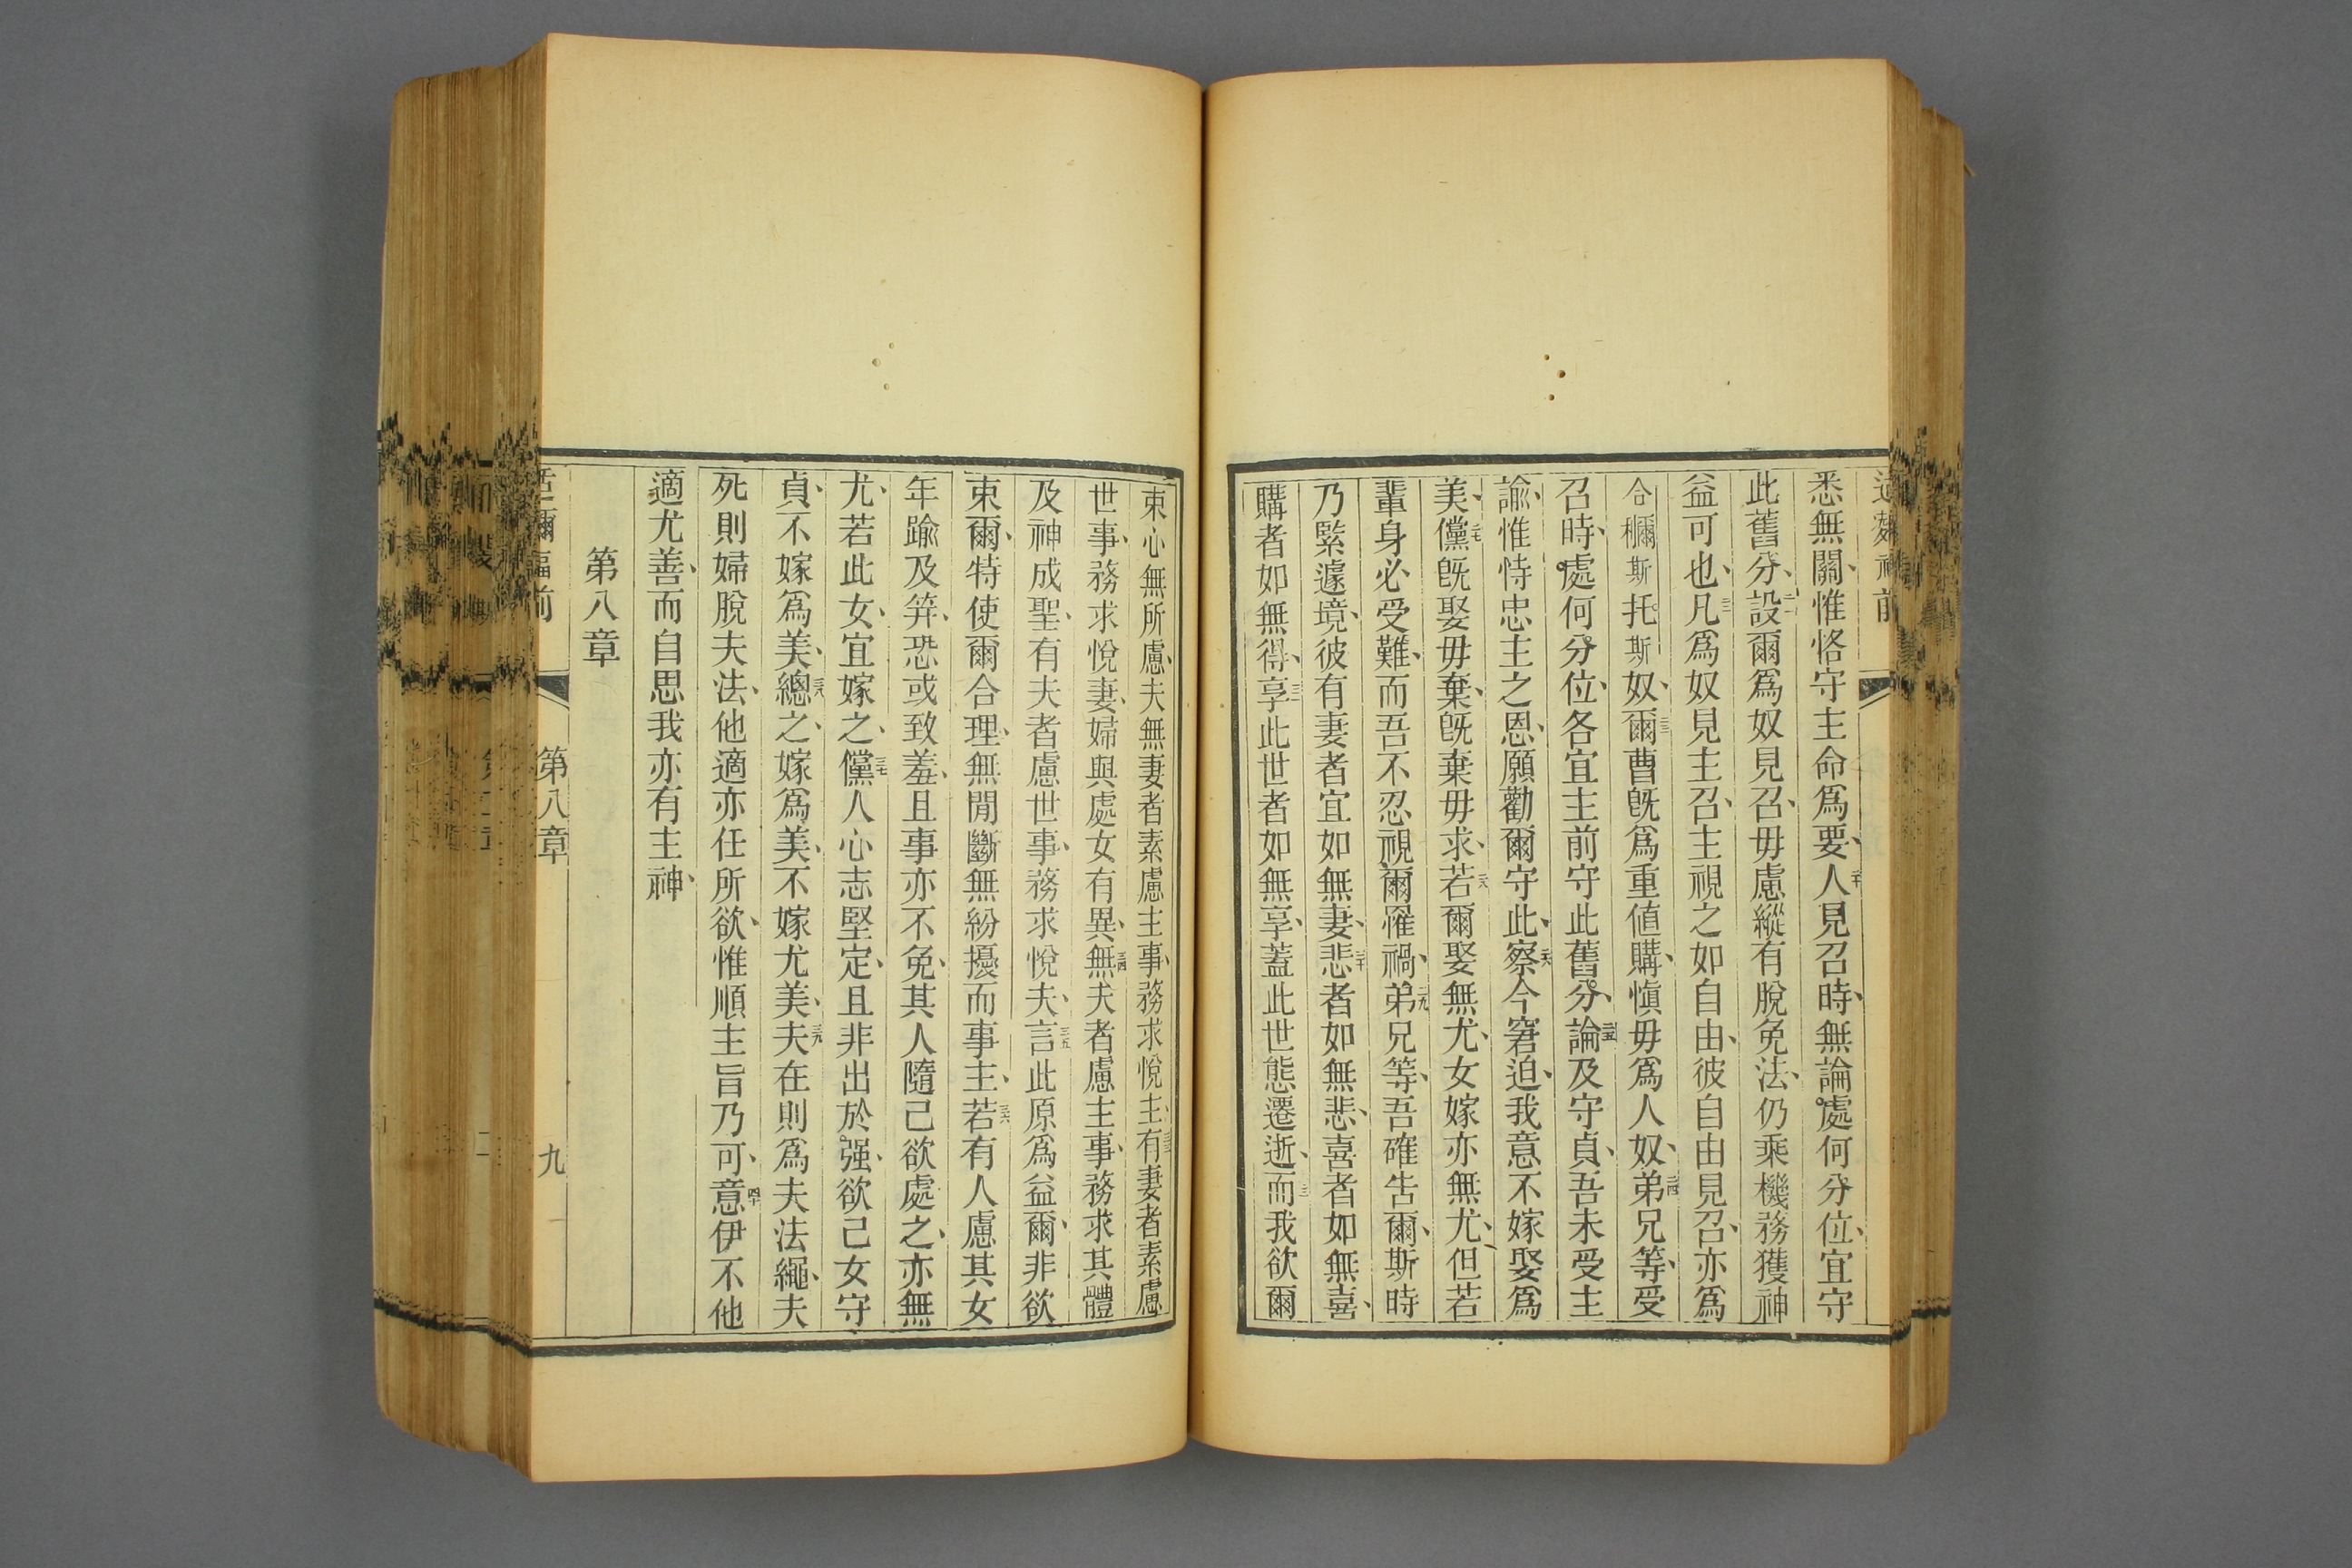 悉無關、惟恪守主命爲要、二十人見召時、無論處何分位、宜守
此舊分、二一設爾爲奴見召、毋慮、縱有脫免法、仍乘機務獲神
益可也、二二凡爲奴見主召、主視之如自由、彼自由見召、亦爲
合穪斯托斯奴、二三爾曹旣爲重値購、愼毋爲人奴、二四弟兄等、受
召時、處何分位、各宜主前守此舊分、二五論及守貞、吾未受主
諭、惟恃忠主之恩、願勸爾守此、二六察今窘迫、我意不嫁娶爲
美、二七儻旣娶毋棄、旣棄毋求、二八若爾娶無尤、女嫁亦無尤、但若
輩身必受難、而吾不忍視爾罹禍、二九弟兄等、吾確吿爾、斯時
乃緊遽境、彼有妻者宜如無妻、三十悲者如無悲、喜者如無喜、
購者如無得、三一享此世者如無享、蓋此世態遷逝、三二而我欲爾
束心無所慮、夫無妻者素慮主事、務求悅主、三三有妻者素慮
世事、務求悅妻、婦與處女有異、三四無夫者慮主事、務求其體
及神成聖、有夫者慮世事、務求悅夫、三五言此原爲益爾、非欲
束爾、特使爾合理、無閒斷無紛擾而事主、三六若有人慮其女
年踰及笄、恐或致羞、且事亦不免、其人隨己欲處之、亦無
尤、若此女、宜嫁之、三七儻人心志堅定、且非出於强、欲己女守
貞、不嫁爲美、三八總之、嫁爲美、不嫁尤美、三九夫在則爲夫法繩、夫
死則婦脫夫法、他適亦任所欲、惟順主旨乃可、四十意伊不他
適尤善、而自思我亦有主神、
第八章
第八章
九